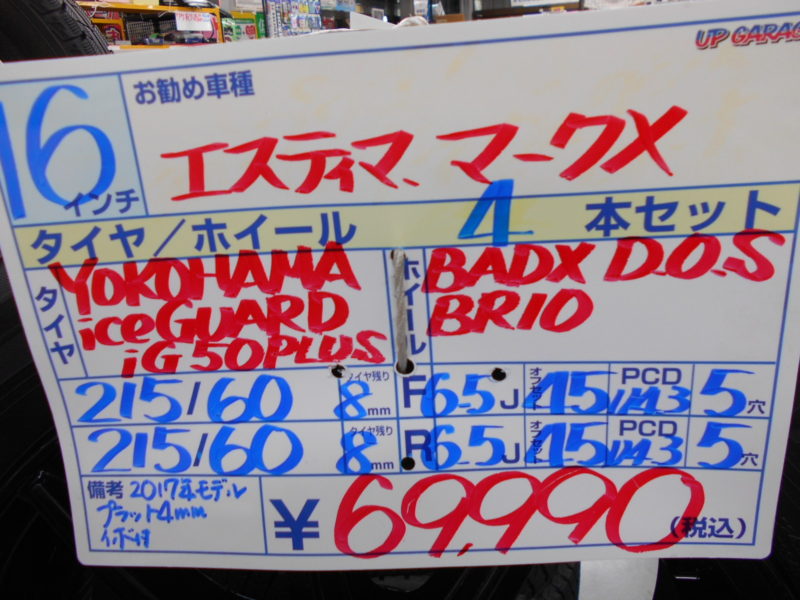 UP GARAG
お勧め車種
16
インチ
エスティマ、マークX
タイヤ／ホイール 4 本セット
タイヤ
YOKOHAMA
iceGUARD
iG50PLUS
ホイール
BADX D.O.S
BR10
215/60 タイヤ残り 8mm F 6.5J オフセット 45 PCD 114.3 5穴
215/60 タイヤ残り 8mm R 6.5J オフセット 45 PCD 114.3 5穴
備考 2017年モデル
プラット4mm
¥69,990(税込)